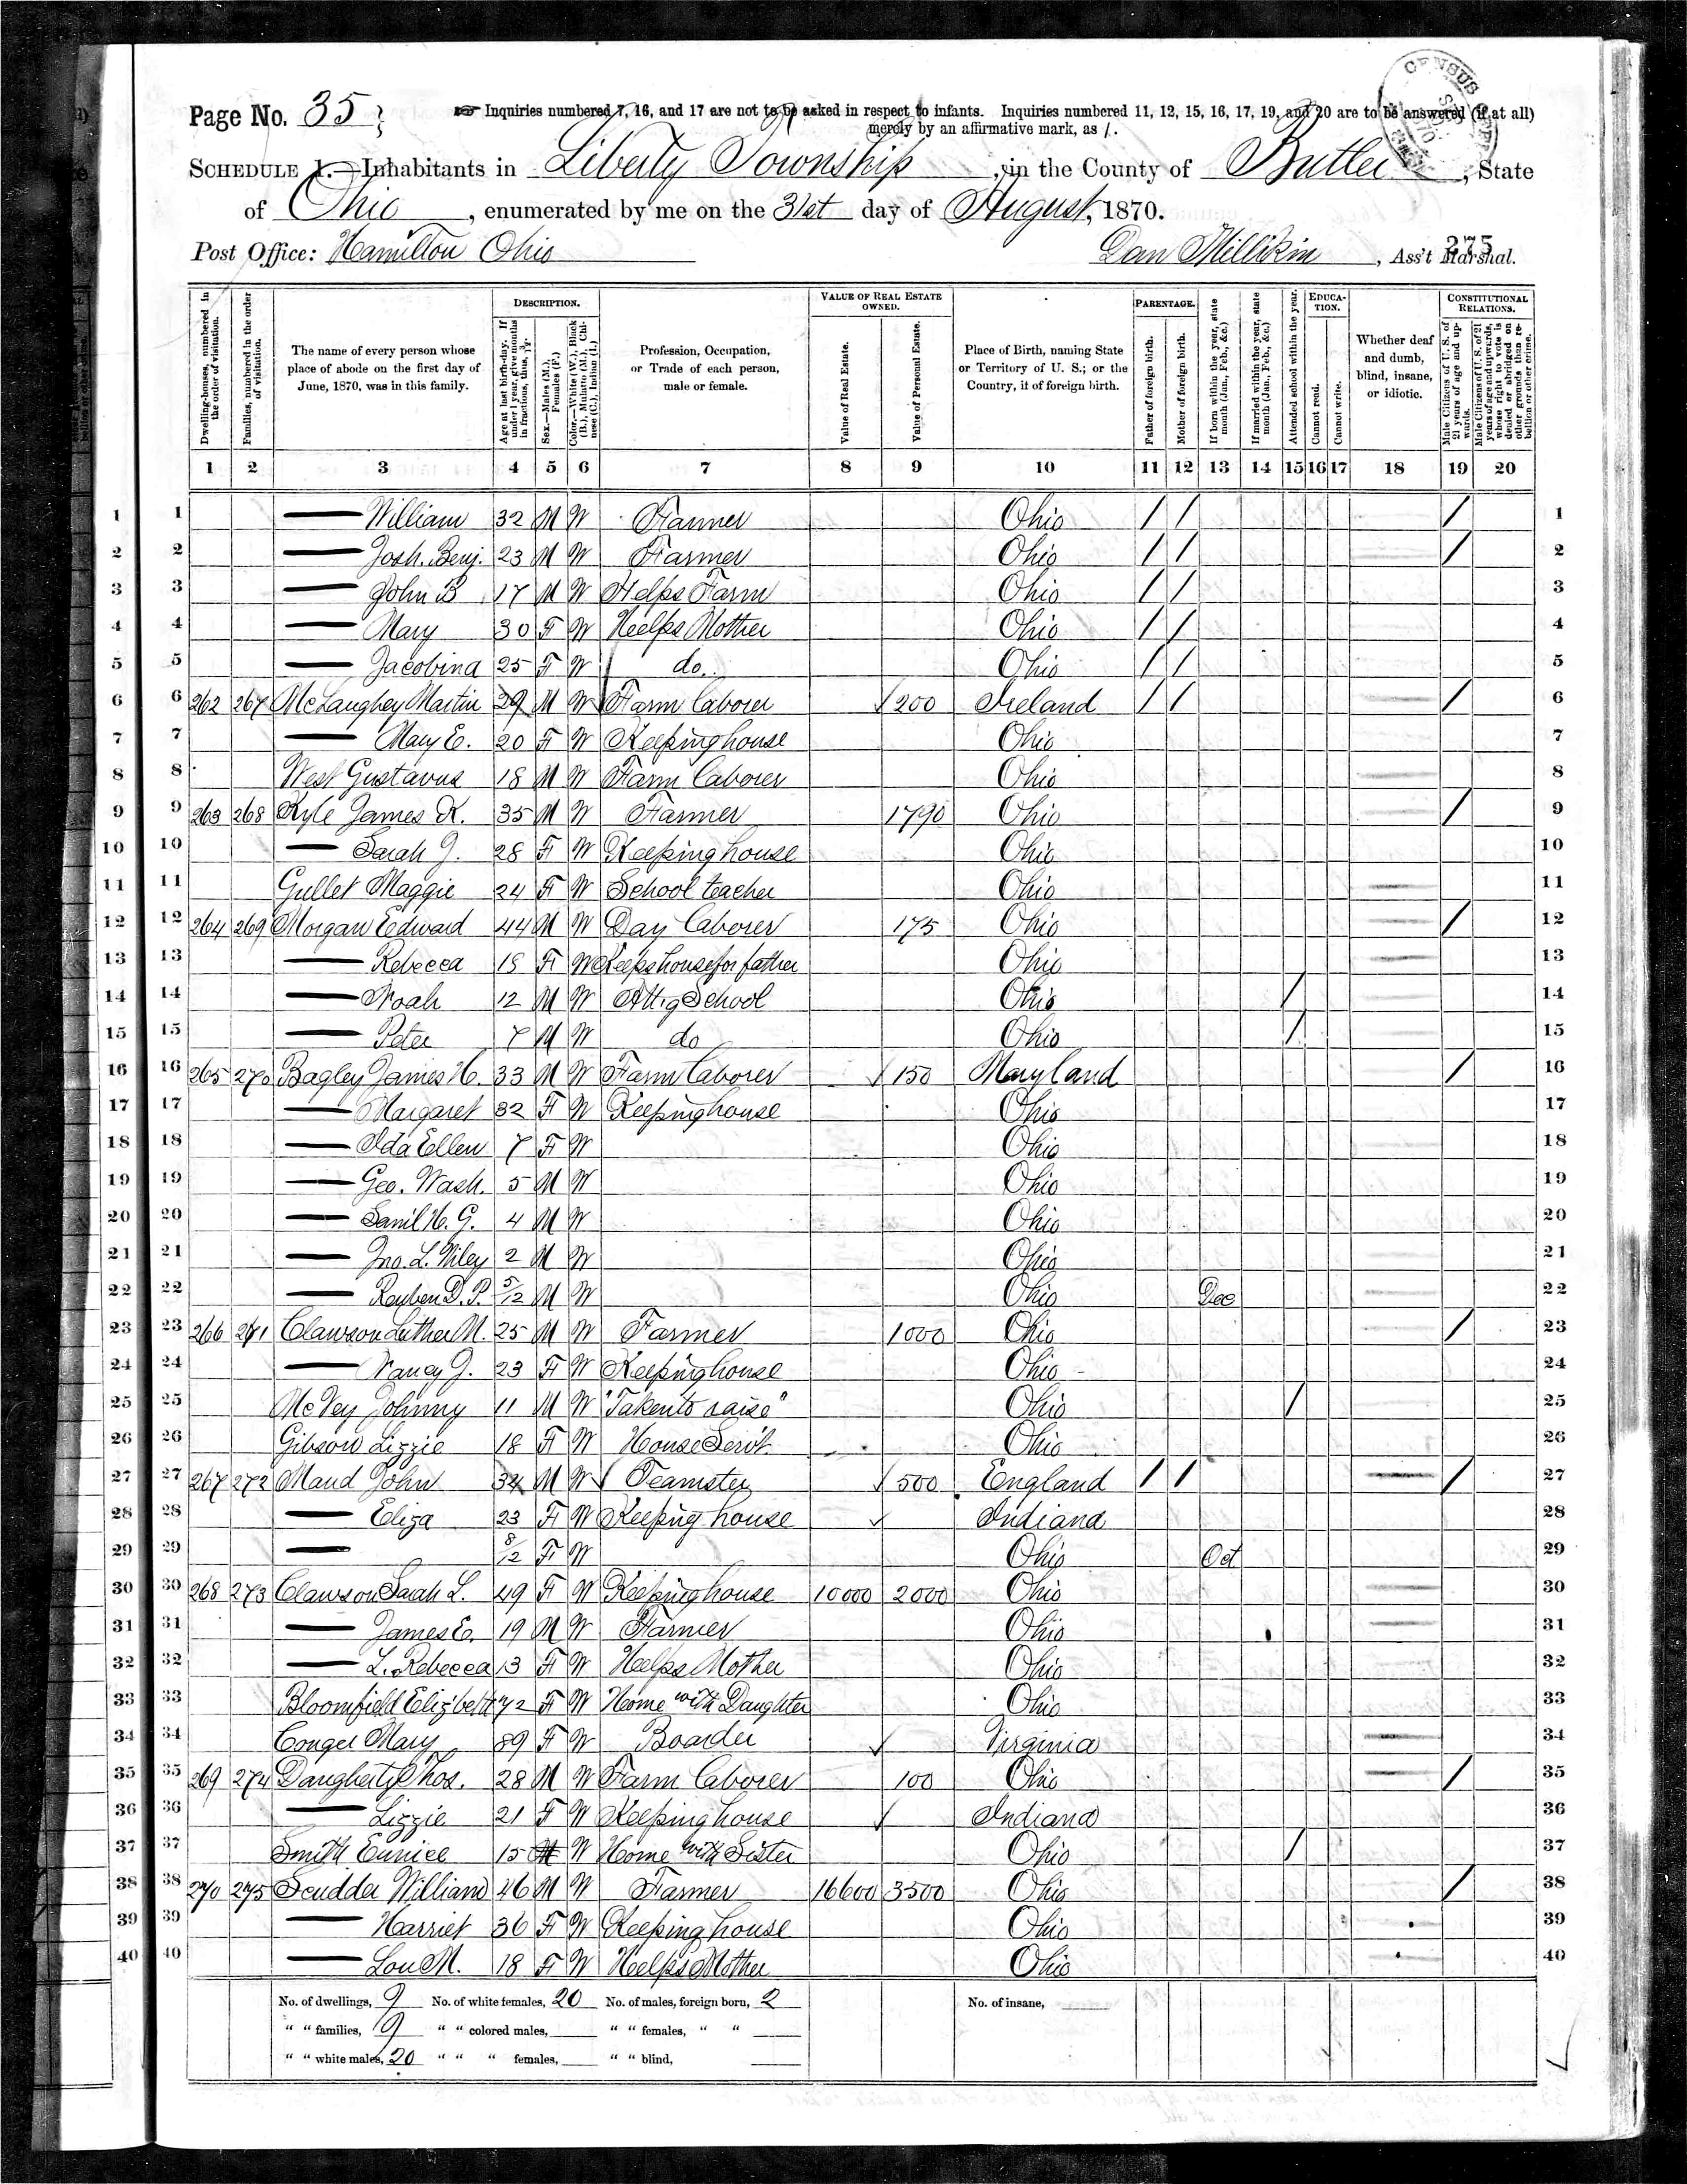 Page No. 35
Inquiries numbered 7, 16, and 17 are not to be asked in respect to infants. Inquiries numbered 11, 12, 15, 16, 17, 19, and 20 are to be answered (if at all)
merely by an affirmative mark, as /.
SCHEDULE 1.—Inhabitants in Liberty Township, in the County of Butler, State
of Ohio, enumerated by me on the 31st day of August, 1870.
Post Office: Hamilton Ohio Dan Millikin, Ass't Marshal.
275
Dwelling-houses, numbered in the order of visitation.
Families, numbered in the order of visitation.
The name of every person whose place of abode on the first day of June, 1870, was in this family.
DESCRIPTION.
Age at last birth-day. If under 1 year, give months in fractions, thus, 3/12.
Sex.—Males (M.), Females (F.)
Color.—White (W.), Black (B.), Mulatto (M.), Chinese (C.), Indian (I.)
Profession, Occupation, or Trade of each person, male or female.
VALUE OF REAL ESTATE OWNED.
Value of Real Estate.
Value of Personal Estate.
Place of Birth, naming State or Territory of U. S.; or the Country, if of foreign birth.
PARENTAGE.
Father of foreign birth.
Mother of foreign birth.
If born within the year, state month (Jan., Feb., &c.)
If married within the year, state month (Jan., Feb., &c.)
Attended school within the year.
EDUCATION.
Cannot read.
Cannot write.
Whether deaf and dumb, blind, insane, or idiotic.
CONSTITUTIONAL RELATIONS.
Male Citizens of U. S. of 21 years of age and upwards.
Male Citizens of U. S. of 21 years of age and upwards, whose right to vote is denied or abridged on other grounds than rebellion or other crime.
1 2 3 4 5 6 7 8 9 10 11 12 13 14 15 16 17 18 19 20
1 1 — William 32 M W Farmer Ohio / / / 1
2 2 — Josh. Benj. 23 M W Farmer Ohio / / / 2
3 3 — John B 17 M W Helps Farm Ohio / / 3
4 4 — Mary 30 F W Heelps Mother Ohio / / 4
5 5 — Jacobina 25 F W do. Ohio / / 5
6 6 262 267 McLaughey Martin 29 M W Farm Laborer 200 Ireland / / / 6
7 7 — Mary E. 20 F W Keeping house Ohio 7
8 8 West Gustavus 18 M W Farm Laborer Ohio 8
9 9 263 268 Kyle James K. 35 M W Farmer 1790 Ohio / 9
10 10 — Sarah J. 28 F W Keeping house Ohio 10
11 11 Gullet Maggie 24 F W School teacher Ohio 11
12 12 264 269 Morgan Edward 44 M W Day Laborer 175 Ohio / 12
13 13 — Rebecca 18 F W Keeps house for father Ohio 13
14 14 — Noah 12 M W Att'g School Ohio / 14
15 15 — Peter 7 M W do Ohio / 15
16 16 265 270 Bagley James H. 33 M W Farm Laborer 150 Maryland / 16
17 17 — Margaret 32 F W Keeping house Ohio 17
18 18 — Ida Ellen 7 F W Ohio 18
19 19 — Geo. Wash. 5 M W Ohio 19
20 20 — Sam'l H. G. 4 M W Ohio 20
21 21 — Jno. L. Wiley 2 M W Ohio 21
22 22 — Reyben D. P. 5/12 M W Ohio Dec 22
23 23 266 271 Clawson Luther M. 25 M W Farmer 1000 Ohio / 23
24 24 — Nancy J. 23 F W Keeping house Ohio 24
25 25 McVey Johnny 11 M W "Taken to raise" Ohio / 25
26 26 Gibson Lizzie 18 F W House Serv't Ohio 26
27 27 267 272 Maud John 34 M W Teamster 500 England / / / 27
28 28 — Eliza 23 F W Keeping house Indiana 28
29 29 — 8/12 F W Ohio Oct 29
30 30 268 273 Clawson Sarah L. 49 F W Keeping house 10000 2000 Ohio 30
31 31 — James E. 19 M W Farmer Ohio 31
32 32 — L. Rebecca 13 F W Heelps Mother Ohio 32
33 33 Bloomfield Elizbeth 72 F W Home with Daughter Ohio 33
34 34 Conger Mary 89 F W Boarder Virginia 34
35 35 269 274 Daugherty Thos. 28 M W Farm Laborer 100 Ohio / 35
36 36 — Lizzie 21 F W Keeping house Indiana 36
37 37 Smith Eunice 15 W Home with Sister Ohio / 37
38 38 270 275 Scudder William 46 M W Farmer 16600 3500 Ohio / 38
39 39 — Harriet 36 F W Keeping house Ohio 39
40 40 — Lou M. 18 F W Heelps Mother Ohio 40
No. of dwellings, 9 No. of white females, 20 No. of males, foreign born, 2 No. of insane,
" " families, 9 " " colored males, " " females, " "
" " white males, 20 " " " females, " " blind,